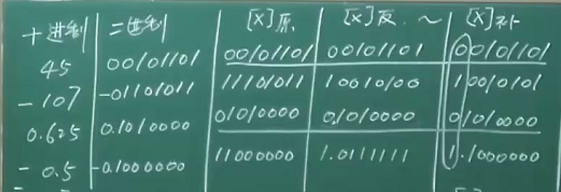 十进制 二进制 [X]原 [X]反 ~ [X]补
45 00101101 00101101 00101101 00101101
-107 -01101011 11101011 10010100 10010101
0.625 0.1010000 01010000 0.1010000 0.1010000
-0.5 -0.1000000 11000000 1.0111111 1.1000000